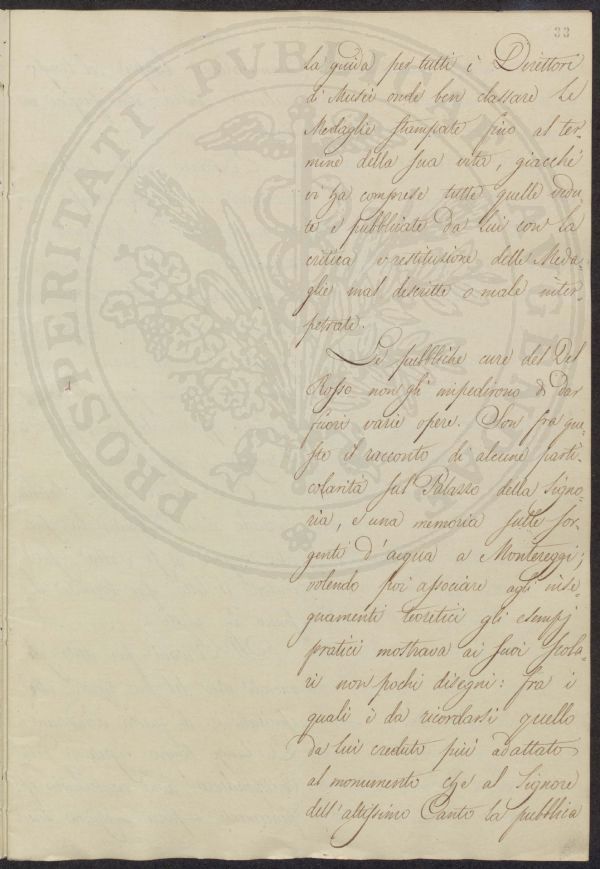 33
La guida per tutti i Direttori
di Musei onde ben classare le
Medaglie stampate fino al ter-
mine della sua vita, giacchè
vi ha comprese tutte quelle vedu-
te e pubblicate da lui con la
critica e restituzione delle Meda-
glie mal descritte o male inter-
petrate.
Le pubbliche cure del Del
Rosso non gli impedirono di dar
fuori varie opere. Son fra que-
ste il racconto di alcune parti-
colarità sul Palazzo della Signo-
ria, e una memoria sulle sor-
genti d'acqua a Montereggi;
volendo poi associare agli inse-
gnamenti teoretici gli esempj
pratici mostrava ai suoi scola-
ri non pochi disegni: fra i
quali è da ricordarsi quello
da lui creduto più adattato
al monumento che al Signore
dell'altissimo Canto la pubblica
PROSPERITATI PUBLICAE AUGENDAE